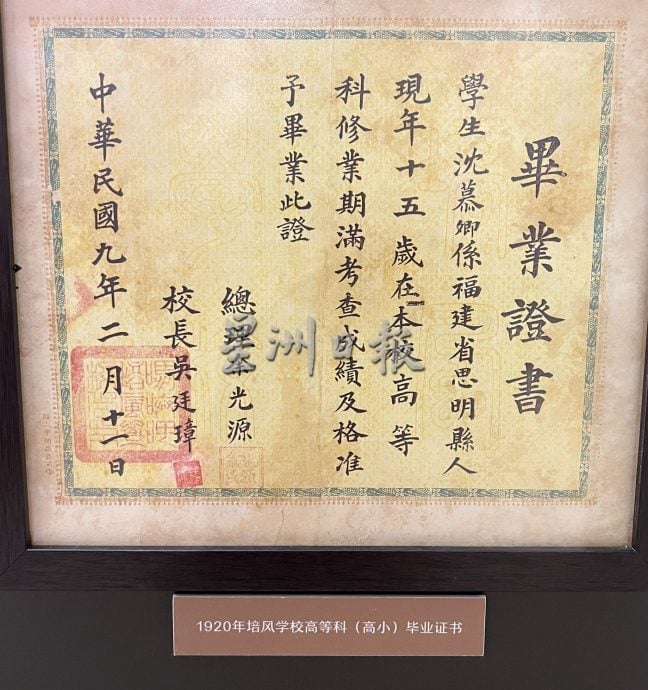 畢業證書
學生沈慕卿係福建省思明縣人
現年十五歲在本校高等
科修業期滿考查成績及格准
予畢業此證
總理李光源
校長吳廷璋
中華民國九年二月十一日
星洲日報
1920年培风学校高等科（高小）毕业证书